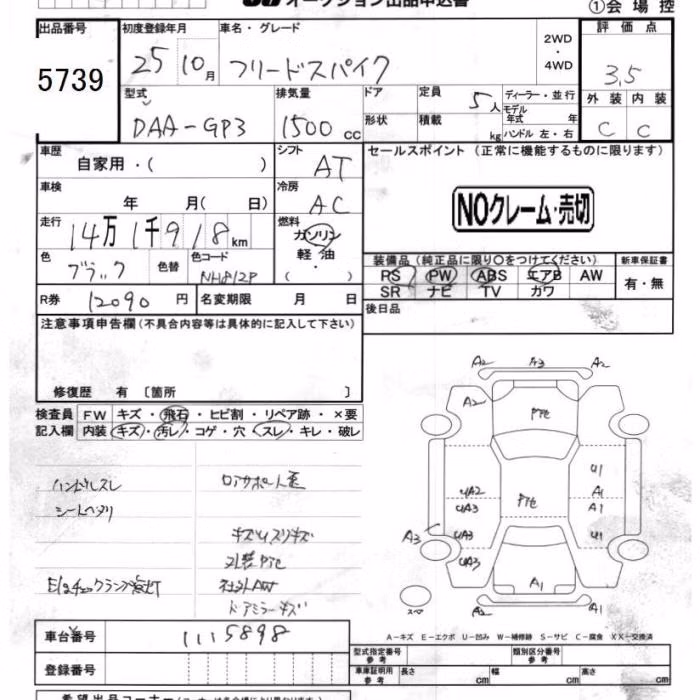 オークション出品申込書
①会場控
出品番号
5739
初度登録年月
25 10月
車名・グレード
フリードスパイク
2WD
・
4WD
評価点
3.5
外装 内装
C C
型式
DAA-GP3
排気量
1500 cc
ドア
定員
5人
ディーラー・並行
モデル
年式 年
形状
積載
kg
ハンドル 左・右
車歴
自家用・( )
シフト
AT
セールスポイント (正常に機能するものに限ります)
NOクレーム・売切
車検
年 月( 日)
冷房
AC
走行
14万1千918km
燃料
ガソリン
軽油
( ・ )
色
ブラック
色替
色コード
NH812P
装備品 (純正品に限り○をつけてください)
PS PW ABS エアB AW
SR ナビ TV カワ
新車保証書
有・無
R券
12090 円
名変期限 月 日
後日品
注意事項申告欄 (不具合内容等は具体的に記入して下さい)
修復歴 有 〔箇所 〕
検査員
記入欄
FW キズ・飛石・ヒビ割・リペア跡・×要
内装 キズ・汚レ・コゲ・穴・スレ・キレ・破レ
ハンドルスレ
シートヘタリ
Egチェックランプ点灯
ロアサポート歪
キズ
外装
社外AW
ドアミラーキズ
A2 A3 A2
A2
U1
UA2 A1
UA3 A1
A3 UA3 U1
UA3
A1
スペ
A-キズ E-エクボ U-凹み W-補修跡 S-サビ C-腐食 XX-交換済
車台番号
1115898
登録番号
型式指定番号
参考
類別区分番号
参考
車庫証明用
参考
長さ cm
幅 cm
高さ cm
希望出品コーナー